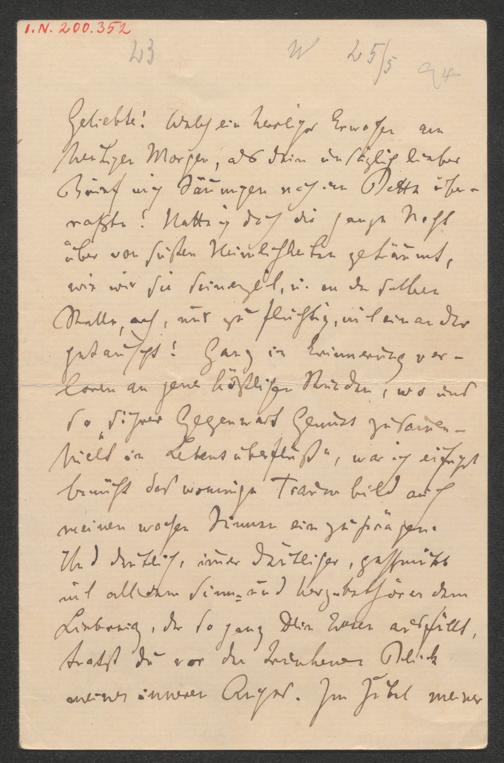 I.N. 200.352
23 W 25/5 94
Geliebte! Welch ein herrliches Erwachen am
heutigen Morgen, als dein unsäglich lieber
Brief mich Säumigen noch im Bette über-
raschte! Hatte ich doch die ganze Nacht
über von süßen Heimlichkeiten geträumt,
wie wir sie seinerzeit, u. an derselben
Stelle, ach, nur zu flüchtig, mit einander
getauscht! Ganz in Erinnerung ver-
loren an jene köstlichen Stunden, wo uns
so "sichrer Gegenwart Genuss zusammen-
hielt im Lebensüberfluß", war ich eifrigst
bemüht das wonnige Traumbild auch
meinen wachen Sinnen einzuprägen.
Und deutlich, immer deutlicher, geschmückt
mit all dem Sinn- und Herzbethörendem
Liebreiz, der so ganz Dein Wesen ausfüllt,
tratst du vor den trunkenen Blick
meines inneren Auges. Im Jubel meiner